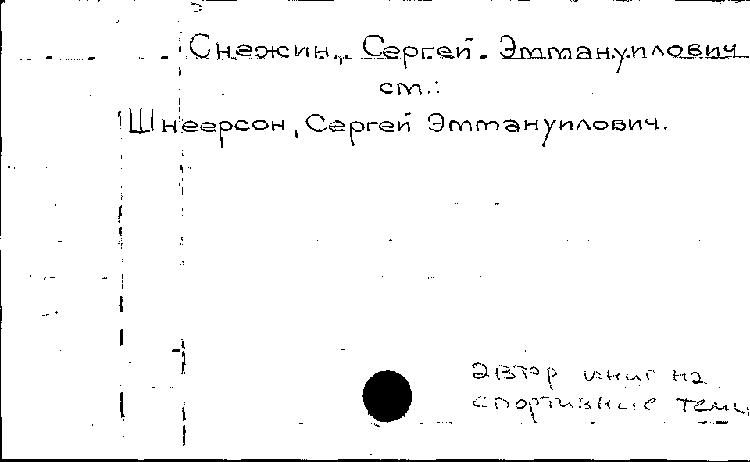 Снежин, Сергей Эммануилович
см.:
Шнеерсон, Сергей Эммануилович.
автор книг на
спортивные темы